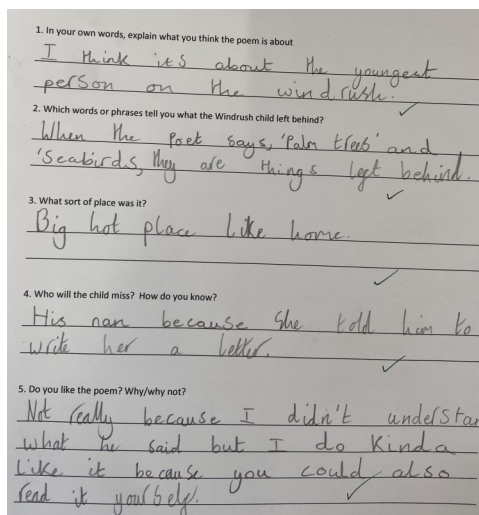 1. In your own words, explain what you think the poem is about
I think it's about the youngest
person on the windrush.
2. Which words or phrases tell you what the Windrush child left behind?
When the Poet says, 'Palm trees' and
'Seabirds, they are things left behind.
3. What sort of place was it?
Big hot place like home.
4. Who will the child miss? How do you know?
His nan because she told him to
write her a letter.
5. Do you like the poem? Why/why not?
Not really because I didn't understan
what he said but I do Kinda
Like it because you could also
read it yourself.